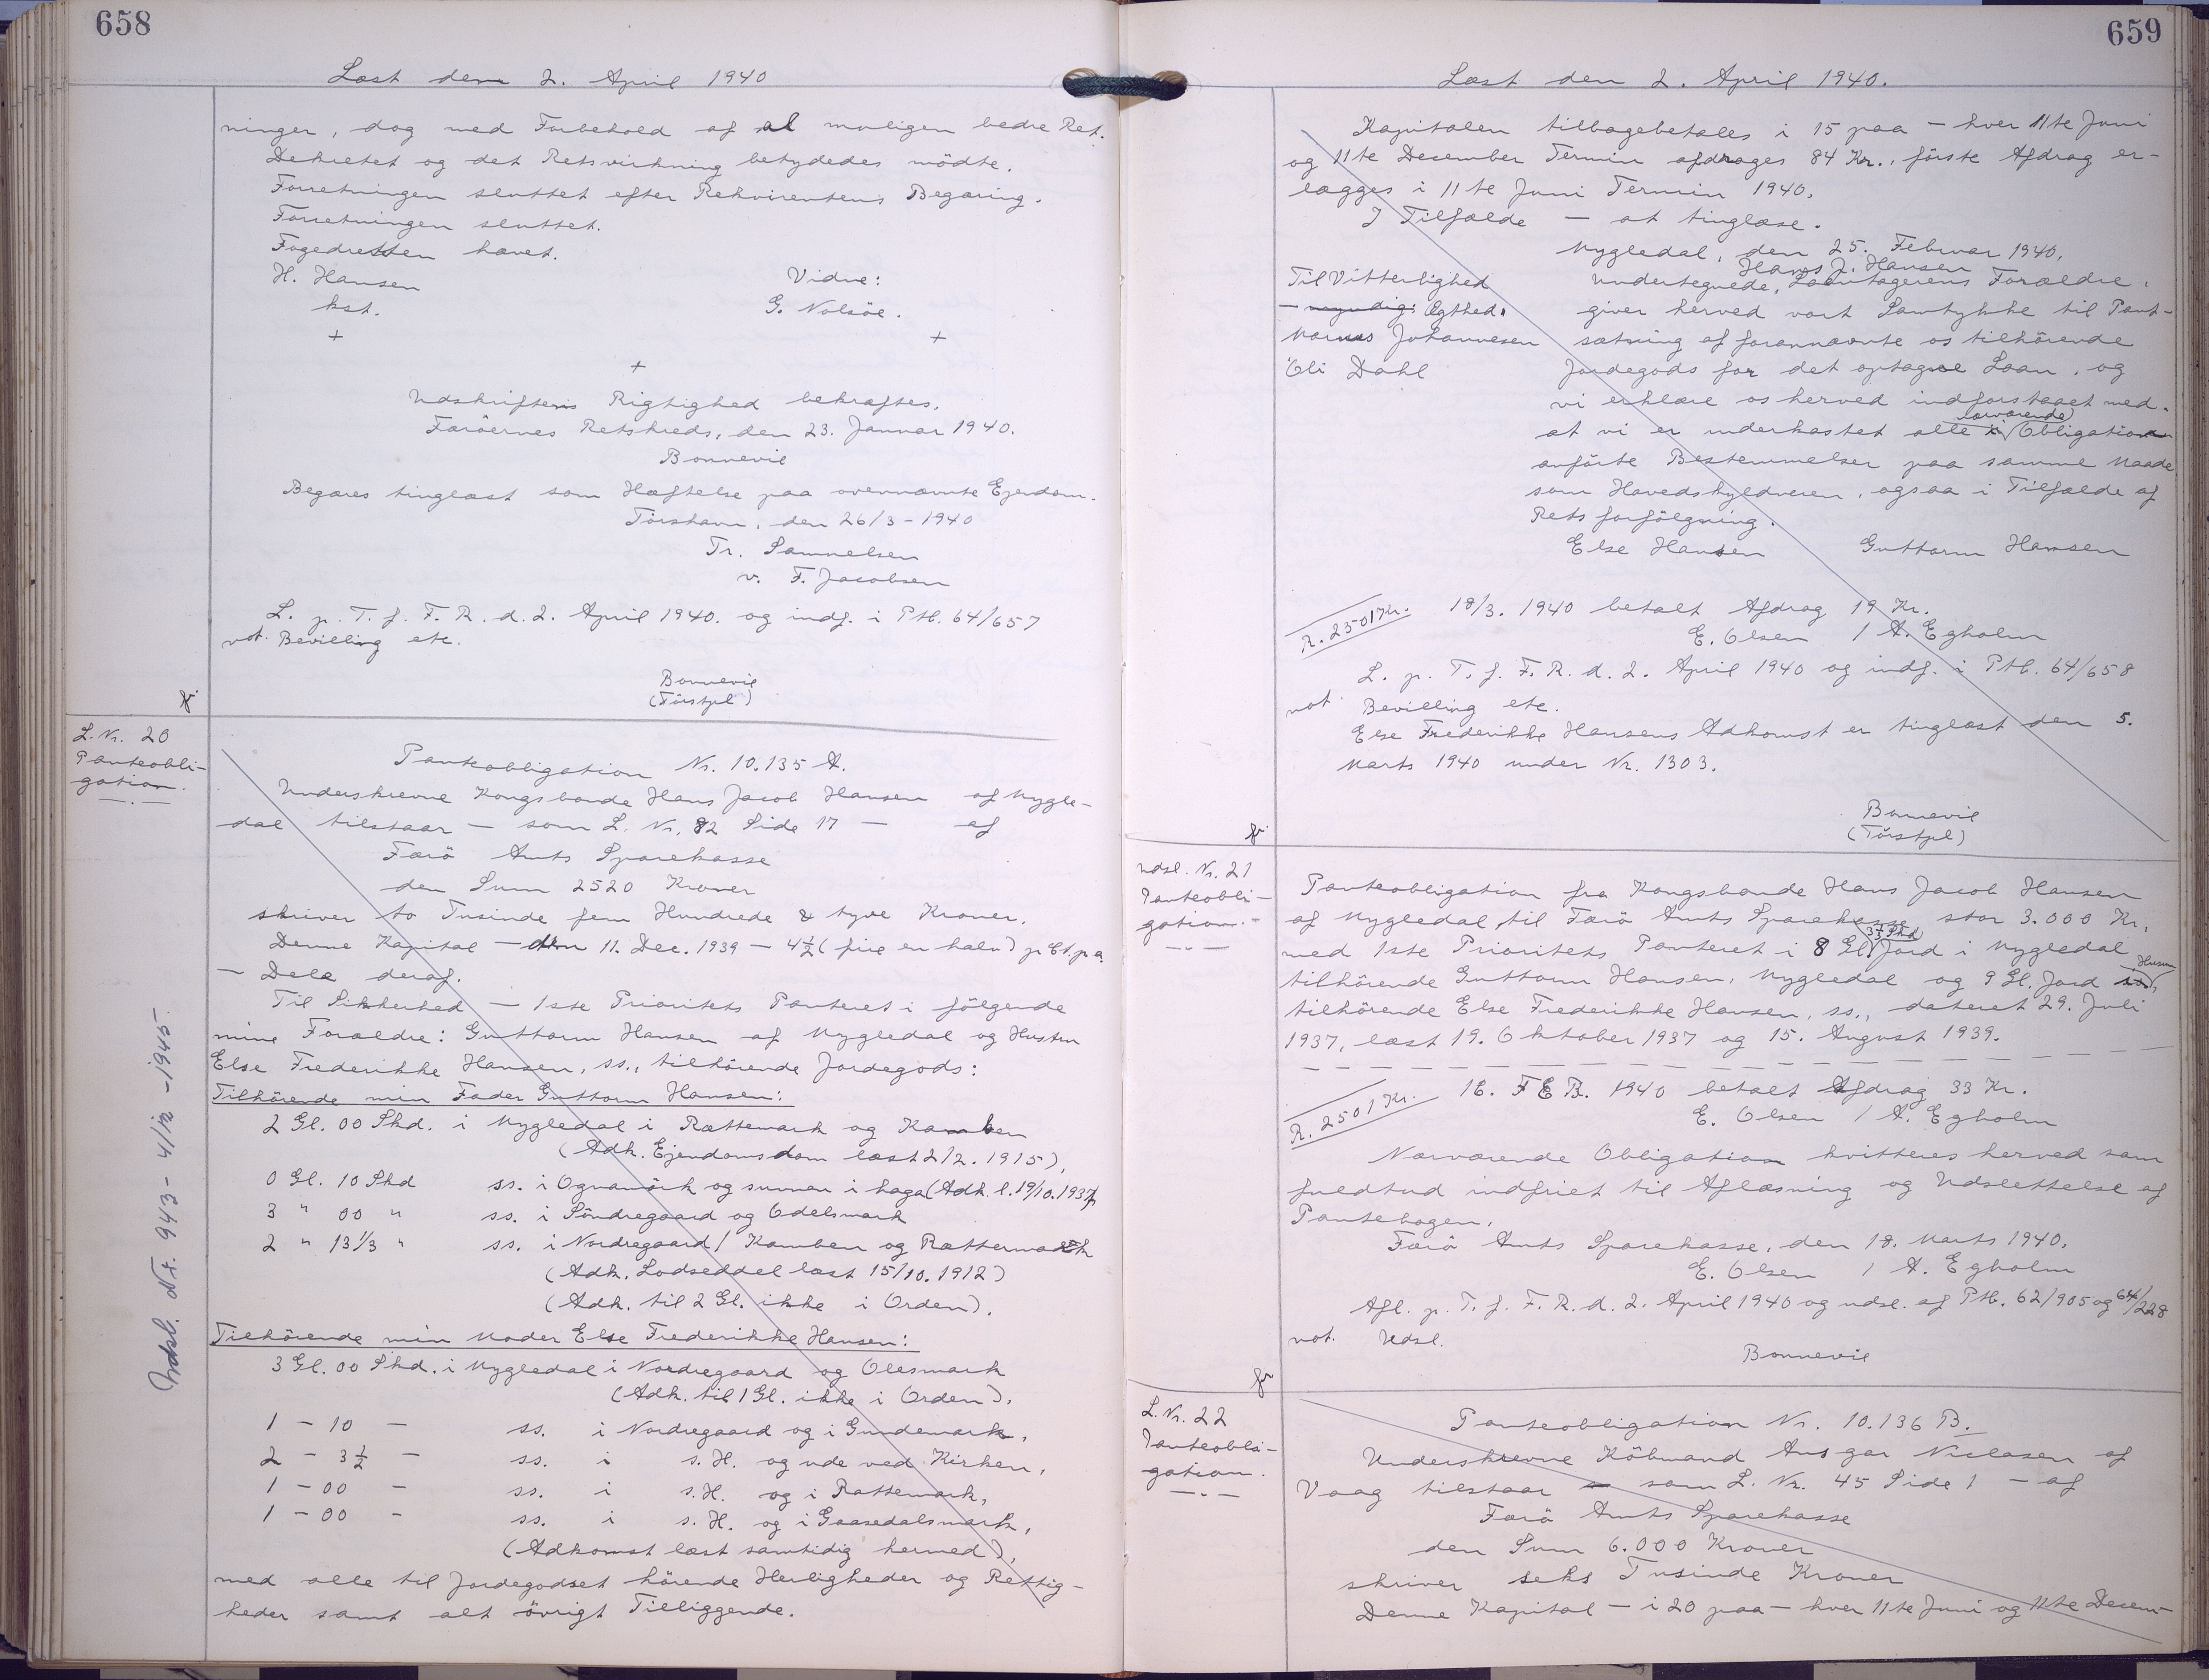 658
Læst den 2. April 1940
ninger, dog med Forbehold af al muligen bedre Ret.
Dekretet og det Retsvirkning betydedes mödte.
Forretningen sluttet efter Rekvirentens Begæring.
Forretningen sluttet.
Fogedretten hævet.
H. Hansen Vidne:
kst. G. Nolsöe.
+ +
+
Udskriftens Rigtighed bekræftes,
Færöernes Retskreds, den 23. Januar 1940.
Bonnevie
Begæres tinglæst som Hæftelse paa ovennævnte Ejendom.
Tórshavn, den 26/3 - 1940
Tr. Samuelsen
v. F. Jacobsen
L. p. T. f. F. R. d. 2. April 1940. og indf. i Ptb. 64/657
not. Bevilling etc.
Bonnevie
(Törstpl)
L. Nr. 20
Panteobli-
gation.
Panteobligation Nr. 10.135 A.
Underskrevne Kongsbonde Hans Jacob Hansen af Mygle-
dal tilstaar — som L. Nr. 82 Side 17 — af
Færö Amts Sparekasse
den Sum 2520 Kroner
skriver to Tusinde fem Hundrede & tyve Kroner.
Denne Kapital — den 11. Dec. 1939 — 4½ (fire en halv) p Ct. p a.
— Dele deraf.
Til Sikkerhed — 1ste Prioritets Panteret i fölgende
mine Forældre: Guttorm Hansen af Mygledal og Hustru
Else Frederikke Hansen, ss., tilhörende Jordegods:
Tilhörende min Fader Guttorm Hansen:
2 Gl. 00 Skd. i Mygledal i Rættemark og Kamben
(Adk. Ejendomsdom læst 2/2. 1915),
0 Gl. 10 Skd ss. i Ognamörk og sunnan i haga (Adk. l. 19/10. 1937),
3 " 00 " ss. i Söndregaard og Odelsmark
2 " 13 1/3 " ss. i Nordregaard / Kamben og Rættermark
(Adk. Lodseddel læst 15/10. 1912)
(Adk. til 2 Gl. ikke i Orden).
Tilhörende min Moder Else Frederikke Hansen:
3 Gl. 00 Skd. i Mygledal i Nordregaard og Olesmark
(Adk. til 1 Gl. ikke i Orden),
1 — 10 — ss. i Nordregaard og i Gundemark,
2 — 3½ — ss. i s. H. og ude ved Kirken,
1 — 00 — ss. i s. H. og i Rattemark,
1 — 00 — ss. i s. H. og i Gaasedalsmark,
(Adkomst læst samtidig hermed),
med alle til Jordegodset hörende Herligheder og Rettig-
heder samt alt övrigt Tilliggende.
Udsl. Nr. 943 - 4/12 - 1945.
659
Læst den 2. April 1940.
Kapitalen tilbagebetales i 15 paa — hver 11te Juni
og 11te December Termin afdrages 84 Kr., förste Afdrag er-
lægges i 11te Juni Termin 1940.
I Tilfælde — at tinglæse.
Mygledal, den 25. Februar 1940.
Hans J. Hansen
Til Vitterlighed
— myndig: Ægthed.
Marius Johannesen
Oli Dahl
Undertegnede, Laantagerens Forældre,
giver herved vort Samtykke til Pant-
sætning af forannævnte os tilhörende
Jordegods for det optagne Laan, og
vi erklære os herved indforstaaet med.
at vi er underkastet alle i nærværende Obligation
anförte Bestemmelser paa samme Maade
som Hovedskyldneren, ogsaa i Tilfælde af
Rets forfölgning.
Else Hansen Guttorm Hansen
R. 2501 Kr. 18/3. 1940 betalt Afdrag 19 Kr.
E. Olsen / A. Egholm
L. p. T. f. F. R. d. 2. April 1940 og indf. i Ptb. 64/658
not Bevilling etc.
Else Frederikke Hansens Adkomst er tinglæst den 5.
Marts 1940 under Nr. 1303.
Bonnevie
(Törstpl)
Udsl. Nr. 21
Panteobli-
gation.
Panteobligation fra Kongsbonde Hans Jacob Hansen
af Mygledal, til Færö Amts Sparekasse, stor 3.000 Kr.
med 1ste Prioritets Panteret i 8 Gl. 3 1/3 Skd Jord i Mygledal
tilhörende Guttorm Hansen, Mygledal og 9 Gl. Jord ss.,
tilhörende Else Frederikke Hansen, ss., dateret 29. Juli
1937, læst 19. Oktober 1937 og 15. August 1939.
R. 2501 Kr. 1E. FEB. 1940 betalt Afdrag 33 Kr.
E. Olsen / A. Egholm
Nærværende Obligation kvitteres herved som
fuldtud indfriet til Aflæsning og Udslettelse af
Pantebogen.
Færö Amts Sparekasse, den 18. Marts 1940.
E. Olsen / A. Egholm
Afl. p. T. f. F. R. d. 2. April 1940 og udsl. af Ptb. 62/905 og 64/228
not. Udsl.
Bonnevie
L. Nr. 22
Panteobli-
gation.
Panteobligation Nr. 10.136 B.
Underskrevne Köbmand Ansgar Niclasen af
Vaag tilstaar — som L. Nr. 45 Side 1 — af
Færö Amts Sparekasse
den Sum 6.000 Kroner
skriver seks Tusinde Kroner
Denne Kapital — i 20 paa — hver 11te Juni og 11te Decem-